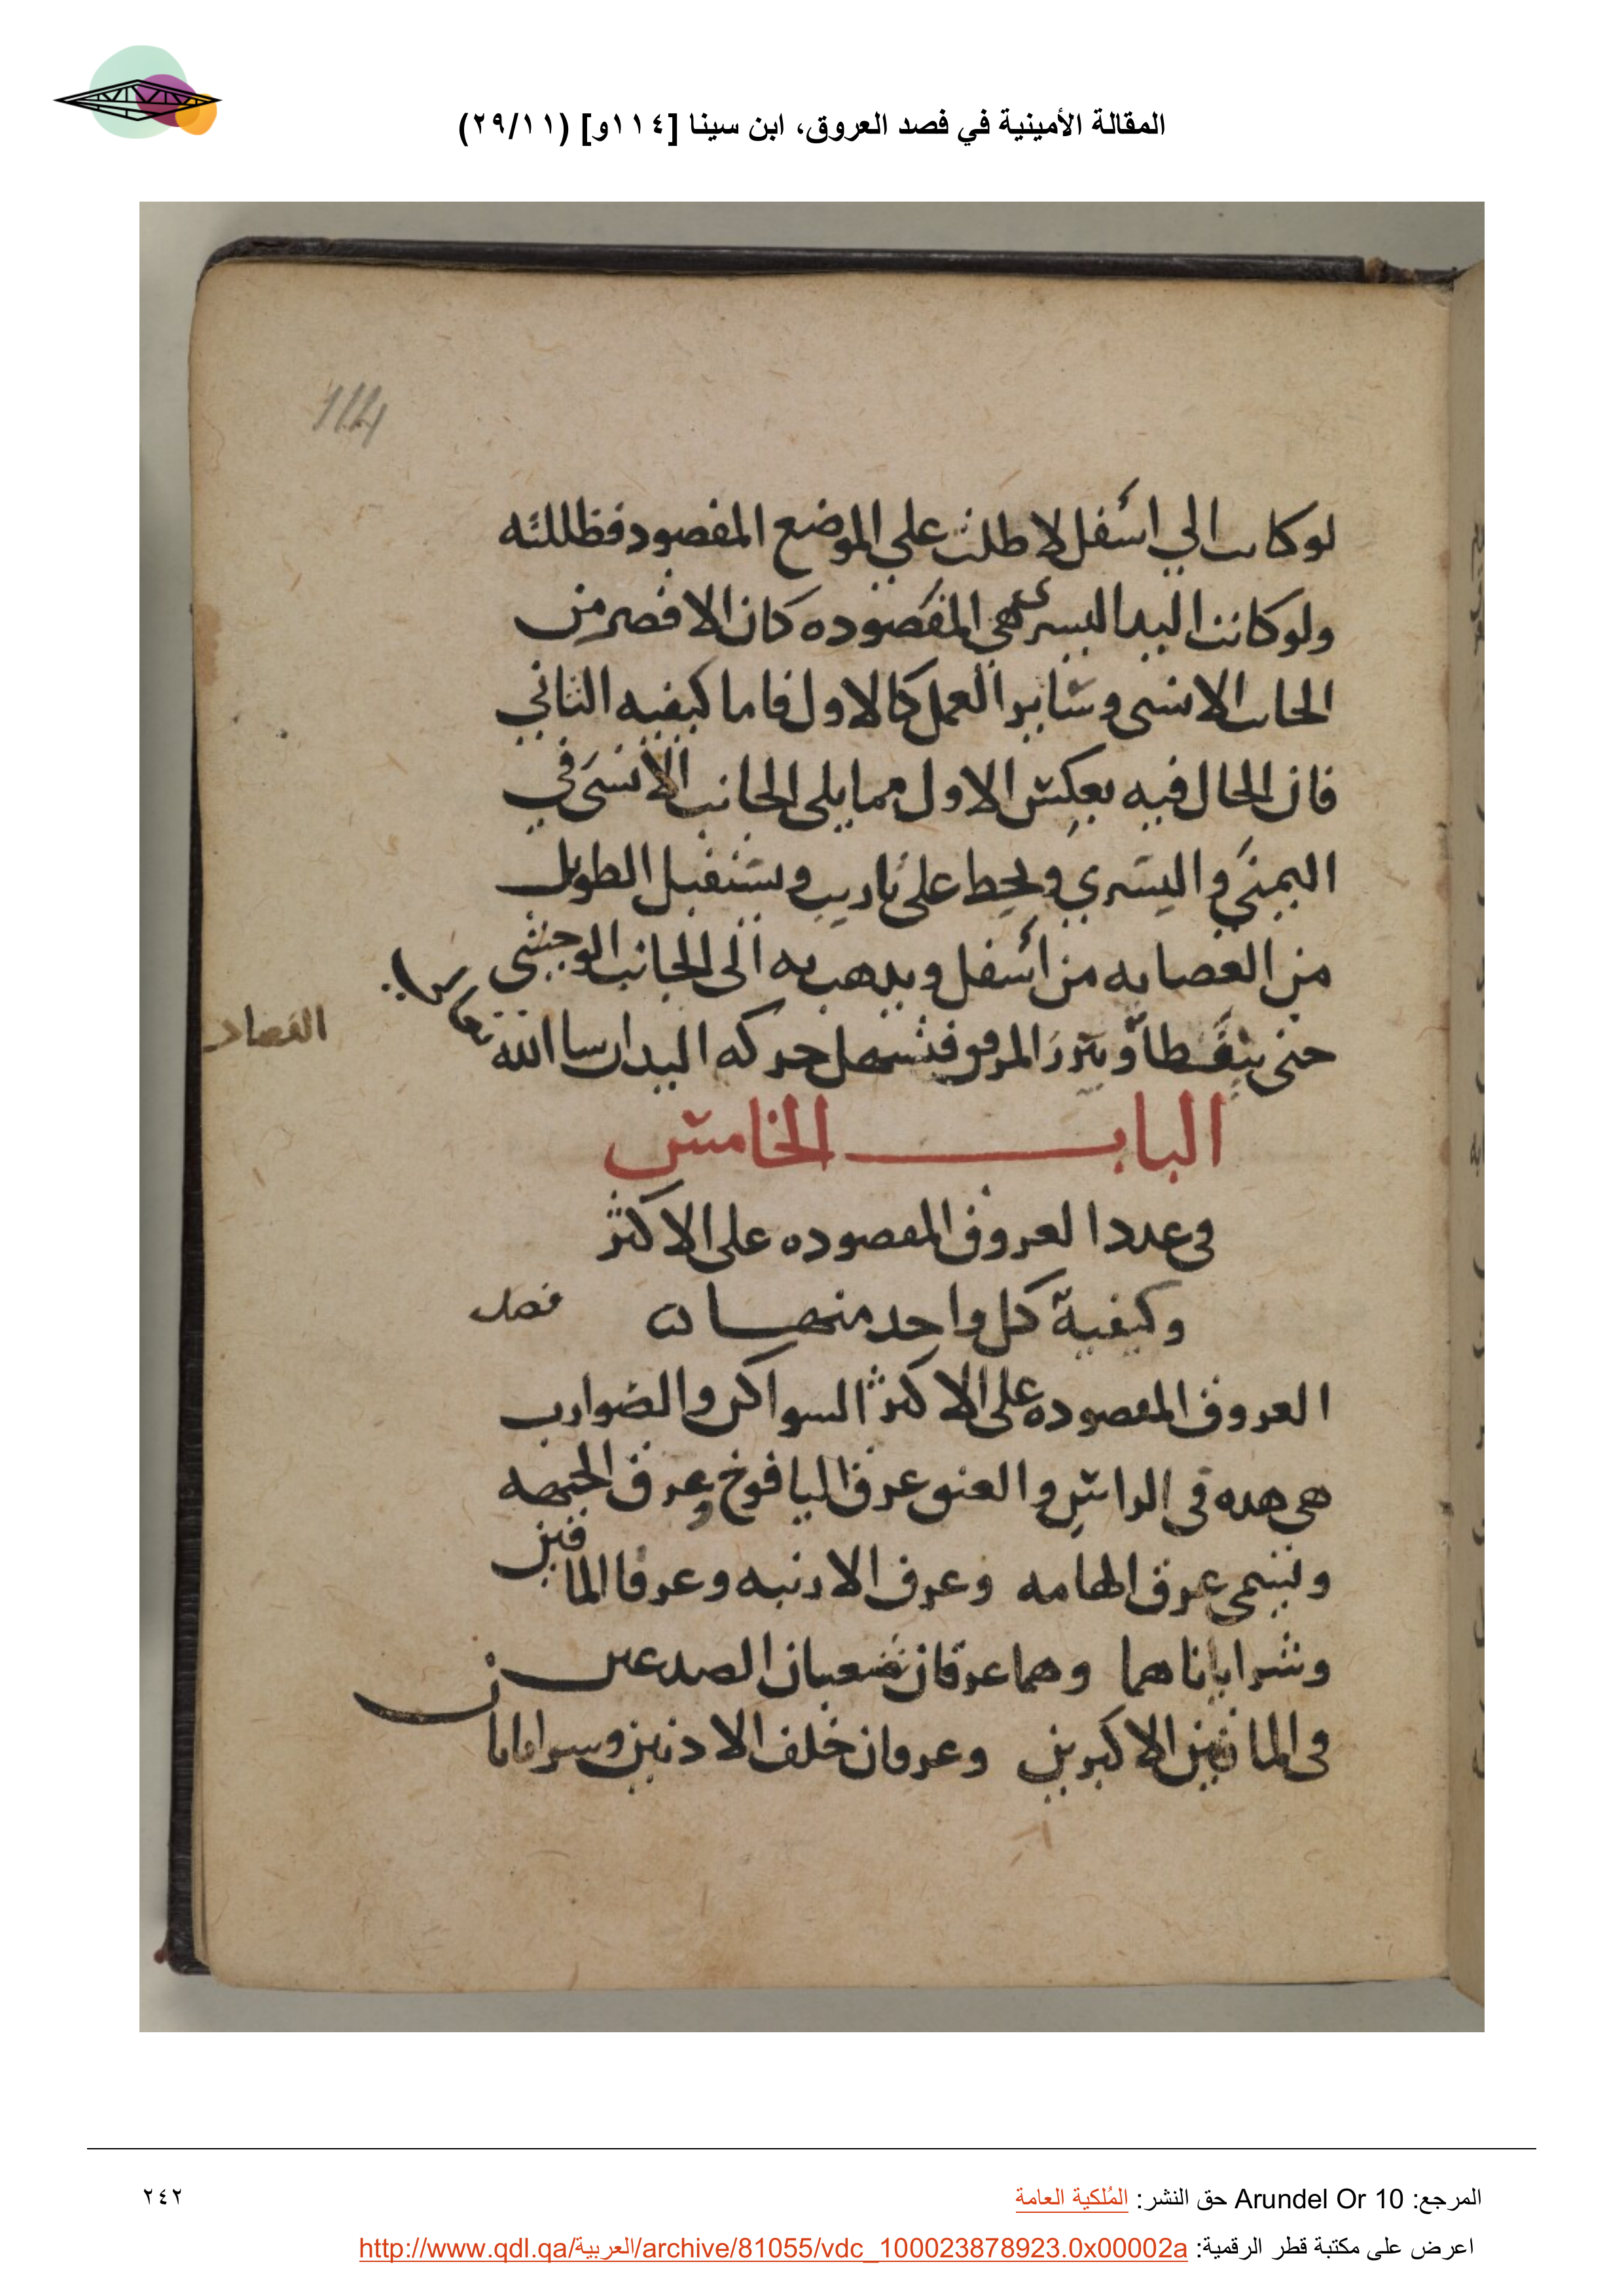 المقالة الأمينية في فصد العروق، ابن سينا [١١٤و] (٢٩/١١)
114
لو كانت الي اسفل لاطلت علي الموضع المفصود فظللته
ولو كانت اليد اليسرى هي المفصوده كان الاقصر من
الجانب الانسى وسائر العمل كالاول فاما كيفيه الثاني
فان الحال فيه بعكس الاول مما يلى الجانب الانسى في
اليمنى واليسري ويحط على تاريب ويستقبل الطويل
من العصابه من اسفل ويذهب به الى الجانب الوحشي
حتى يتقطا وتبرز المرفق فتسهل حركه اليد ان سا الله تعالى
الفصاد
الباب الخامس
فى عدد العروق المفصوده على الاكثر
وكيفية كل واحد منها
فصل
العروق المفصوده على الاكثر السواكن والضوارب
هى هده فى الراس والعنق عرق اليافوخ وعرق الجبهه
ويسمى عرق الهامه وعرق الارنبه وعرقا الماقين
وشراياناهما وهما عرقان شعبان الصدغين
فى الماقين الاكبرين وعرقان خلف الاذنين وسرايانا
المرجع: Arundel Or 10 حق النشر: المُلكية العامة
٢٤٢
اعرض على مكتبة قطر الرقمية: http://www.qdl.qa/العربية/archive/81055/vdc_100023878923.0x00002a